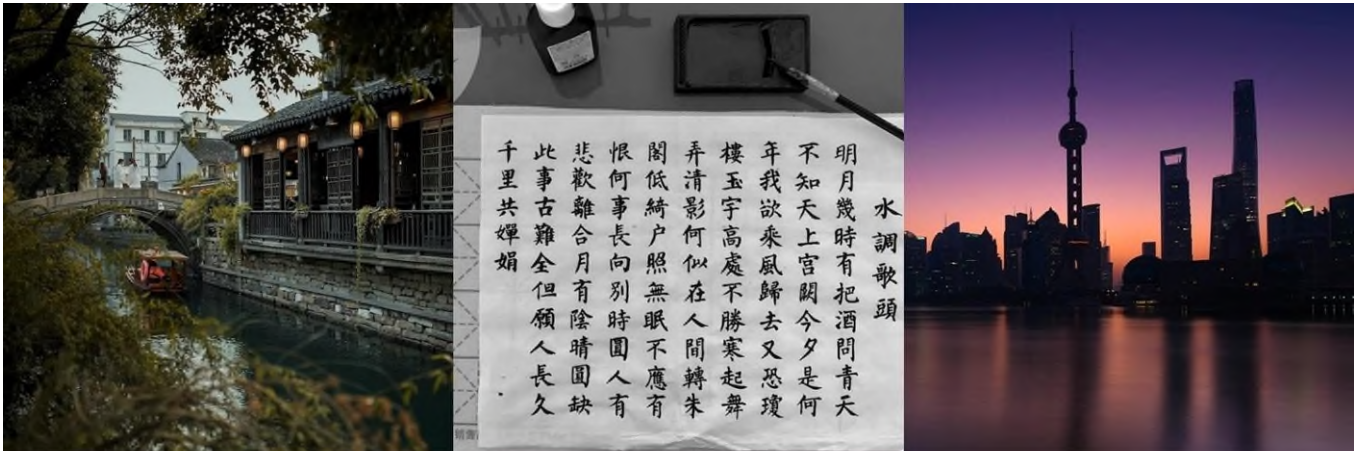 水調歌頭
明月幾時有把酒問青天
不知天上宫闕今夕是何
年我欲乘風歸去又恐瓊
樓玉宇高處不勝寒起舞
弄清影何似在人間轉朱
閣低綺户照無眠不應有
恨何事長向別時圓人有
悲歡離合月有陰晴圓缺
此事古難全但願人長久
千里共嬋娟